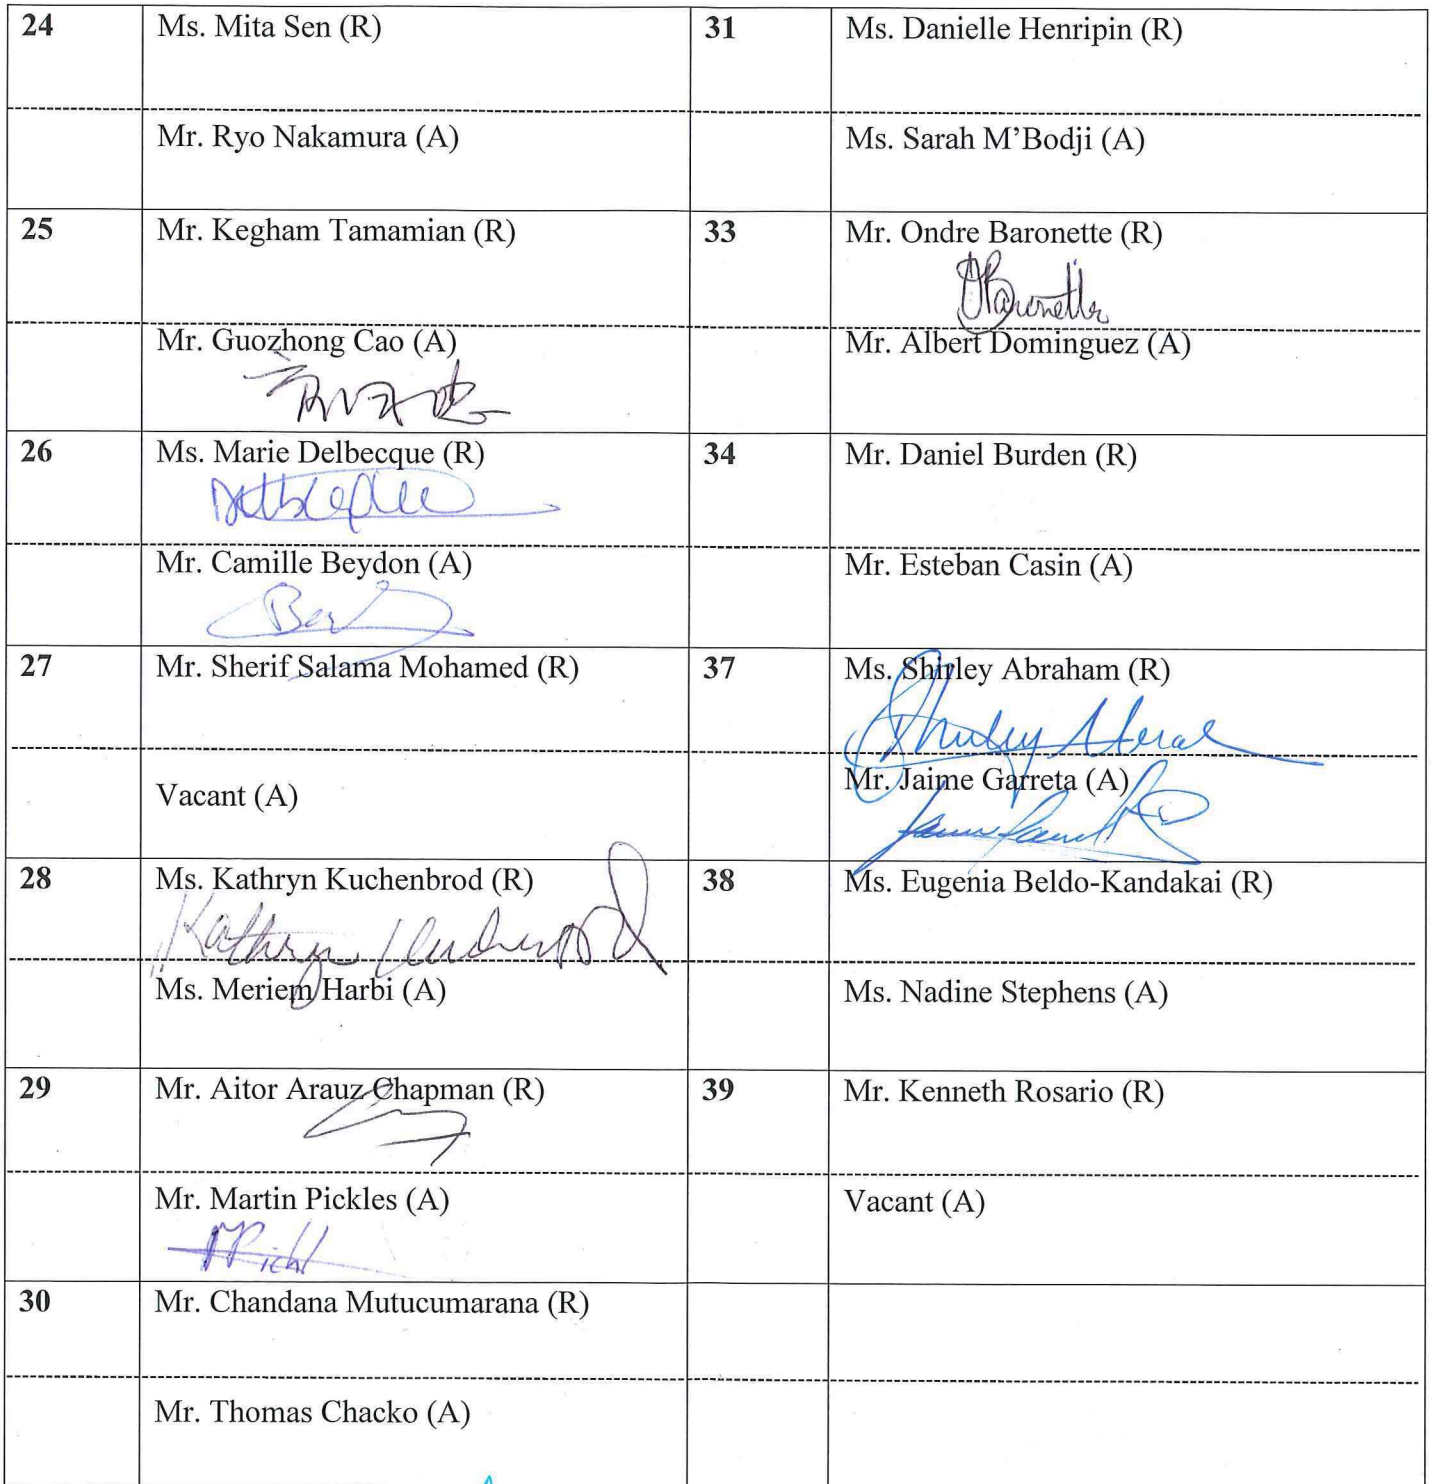 24 Ms. Mita Sen (R) 31 Ms. Danielle Henripin (R)
Mr. Ryo Nakamura (A) Ms. Sarah M’Bodji (A)
25 Mr. Kegham Tamamian (R) 33 Mr. Ondre Baronette (R)
OBaronette
Mr. Guozhong Cao (A) Mr. Albert Dominguez (A)
26 Ms. Marie Delbecque (R) 34 Mr. Daniel Burden (R)
Mr. Camille Beydon (A) Mr. Esteban Casin (A)
27 Mr. Sherif Salama Mohamed (R) 37 Ms. Shirley Abraham (R)
Shirley
Vacant (A) Mr. Jaime Garreta (A)
28 Ms. Kathryn Kuchenbrod (R) 38 Ms. Eugenia Beldo-Kandakai (R)
Kathryn
Ms. Meriem Harbi (A) Ms. Nadine Stephens (A)
29 Mr. Aitor Arauz Chapman (R) 39 Mr. Kenneth Rosario (R)
Mr. Martin Pickles (A) Vacant (A)
30 Mr. Chandana Mutucumarana (R)
Mr. Thomas Chacko (A)